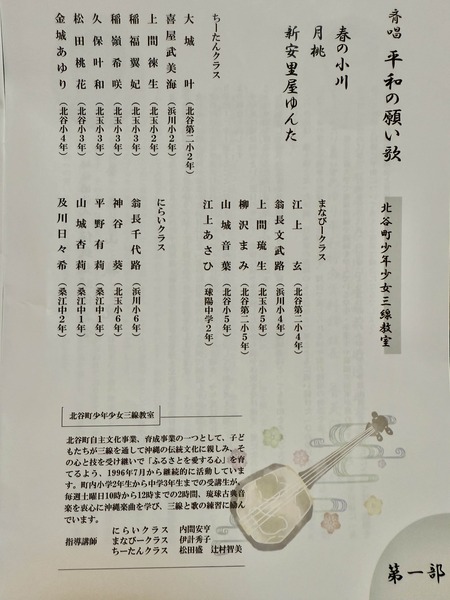 斉唱　平和の願い歌
北谷町少年少女三線教室
春の小川
月桃
新安里屋ゆんた
ちーたんクラス
大城　叶（北谷第二小2年）
喜屋武美海（浜川小2年）
上間徠生（北玉小2年）
稲福翼妃（北玉小3年）
稲嶺希咲（北玉小3年）
久保叶和（北玉小3年）
松田桃花（北谷小3年）
金城あゆり（北谷小4年）
まなびークラス
江上　玄（北谷第二小4年）
翁長文武路（浜川小4年）
上間琉生（北玉小5年）
柳沢まみ（北谷第二小5年）
山城音葉（北谷小5年）
江上あさひ（球陽中学2年）
にらいクラス
翁長千代路（浜川小6年）
神谷　葵（北玉小6年）
平野有莉（桑江中1年）
山城杏莉（桑江中1年）
及川日々希（桑江中2年）
北谷町少年少女三線教室
北谷町自主文化事業、育成事業の一つとして、子ど
もたちが三線を通して沖縄の伝統文化に親しみ、そ
の心と技を受け継いで「ふるさとを愛する心」を育
てるよう、1996年7月から継続的に活動していま
す。町内小学2年生から中学3年生までの受講生が、
毎週土曜日10時から12時までの2時間、琉球古典音
楽を衷心に沖縄楽曲を学び、三線と歌の練習に励ん
でいます。
指導講師
にらいクラス　内間安亨
まなびークラス　伊計秀子
ちーたんクラス　松田盛　辻村智美
第一部